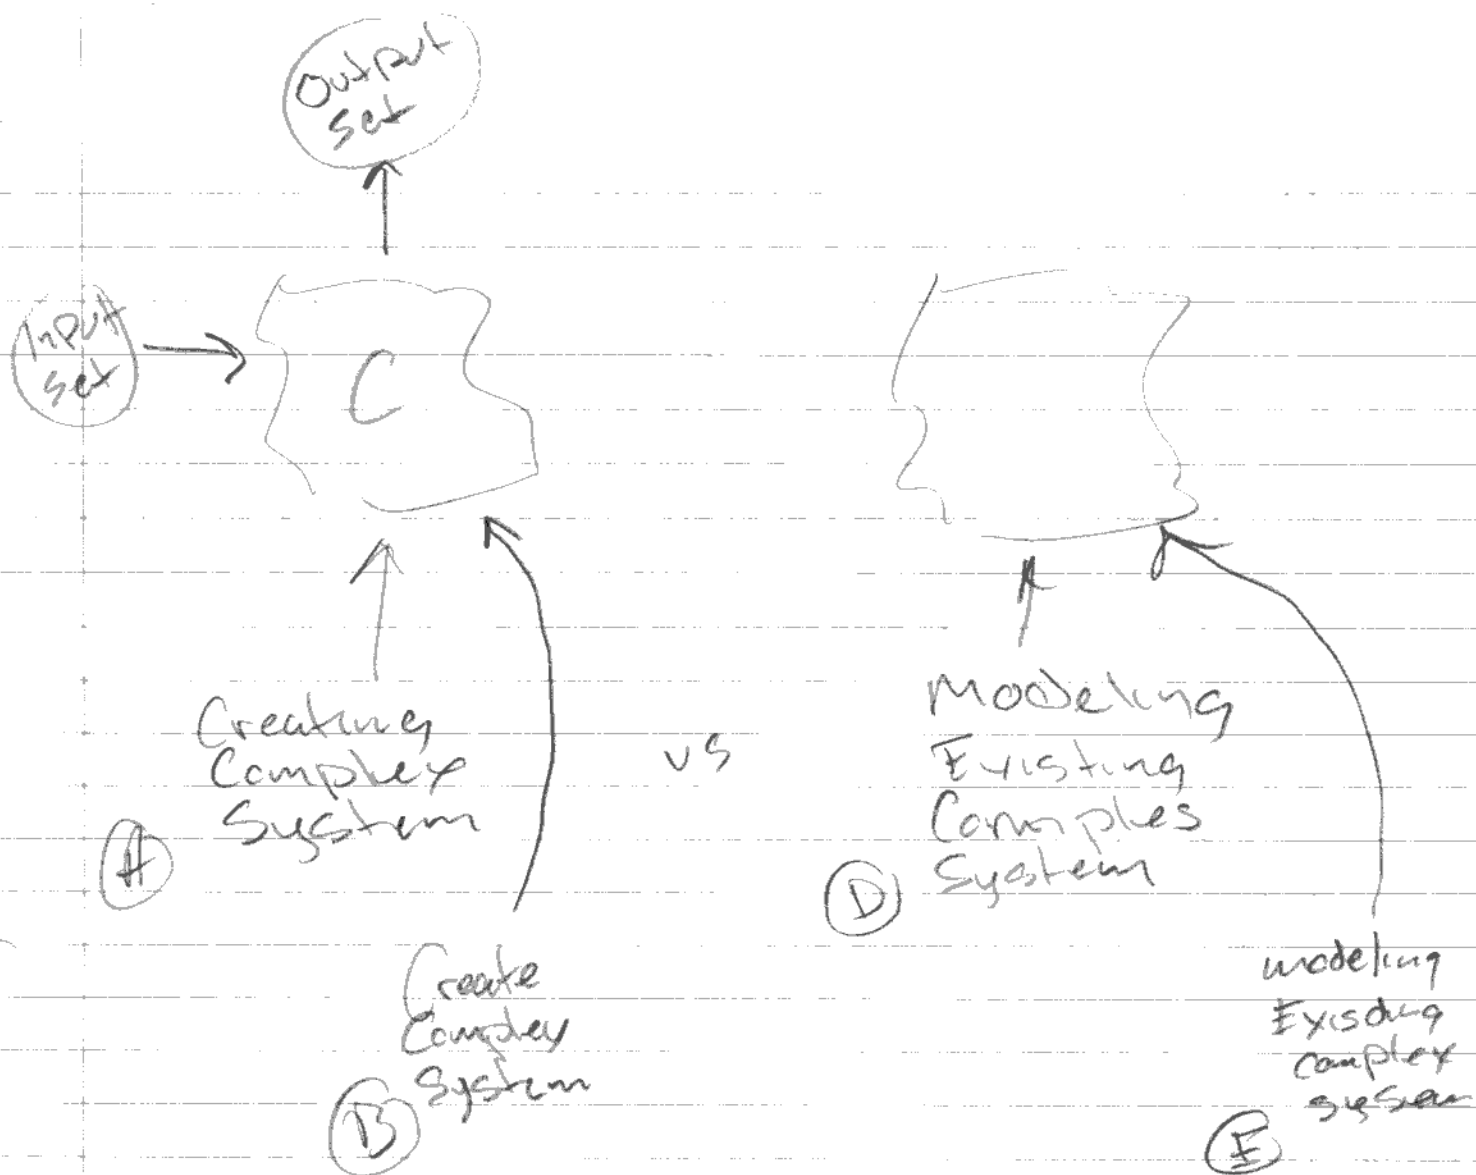 Output
Set
Input
Set
C
Creating
Complex
System
A
vs
Modeling
Existing
Comples
System
D
Create
Complex
System
B
modeling
Existing
complex
system
E